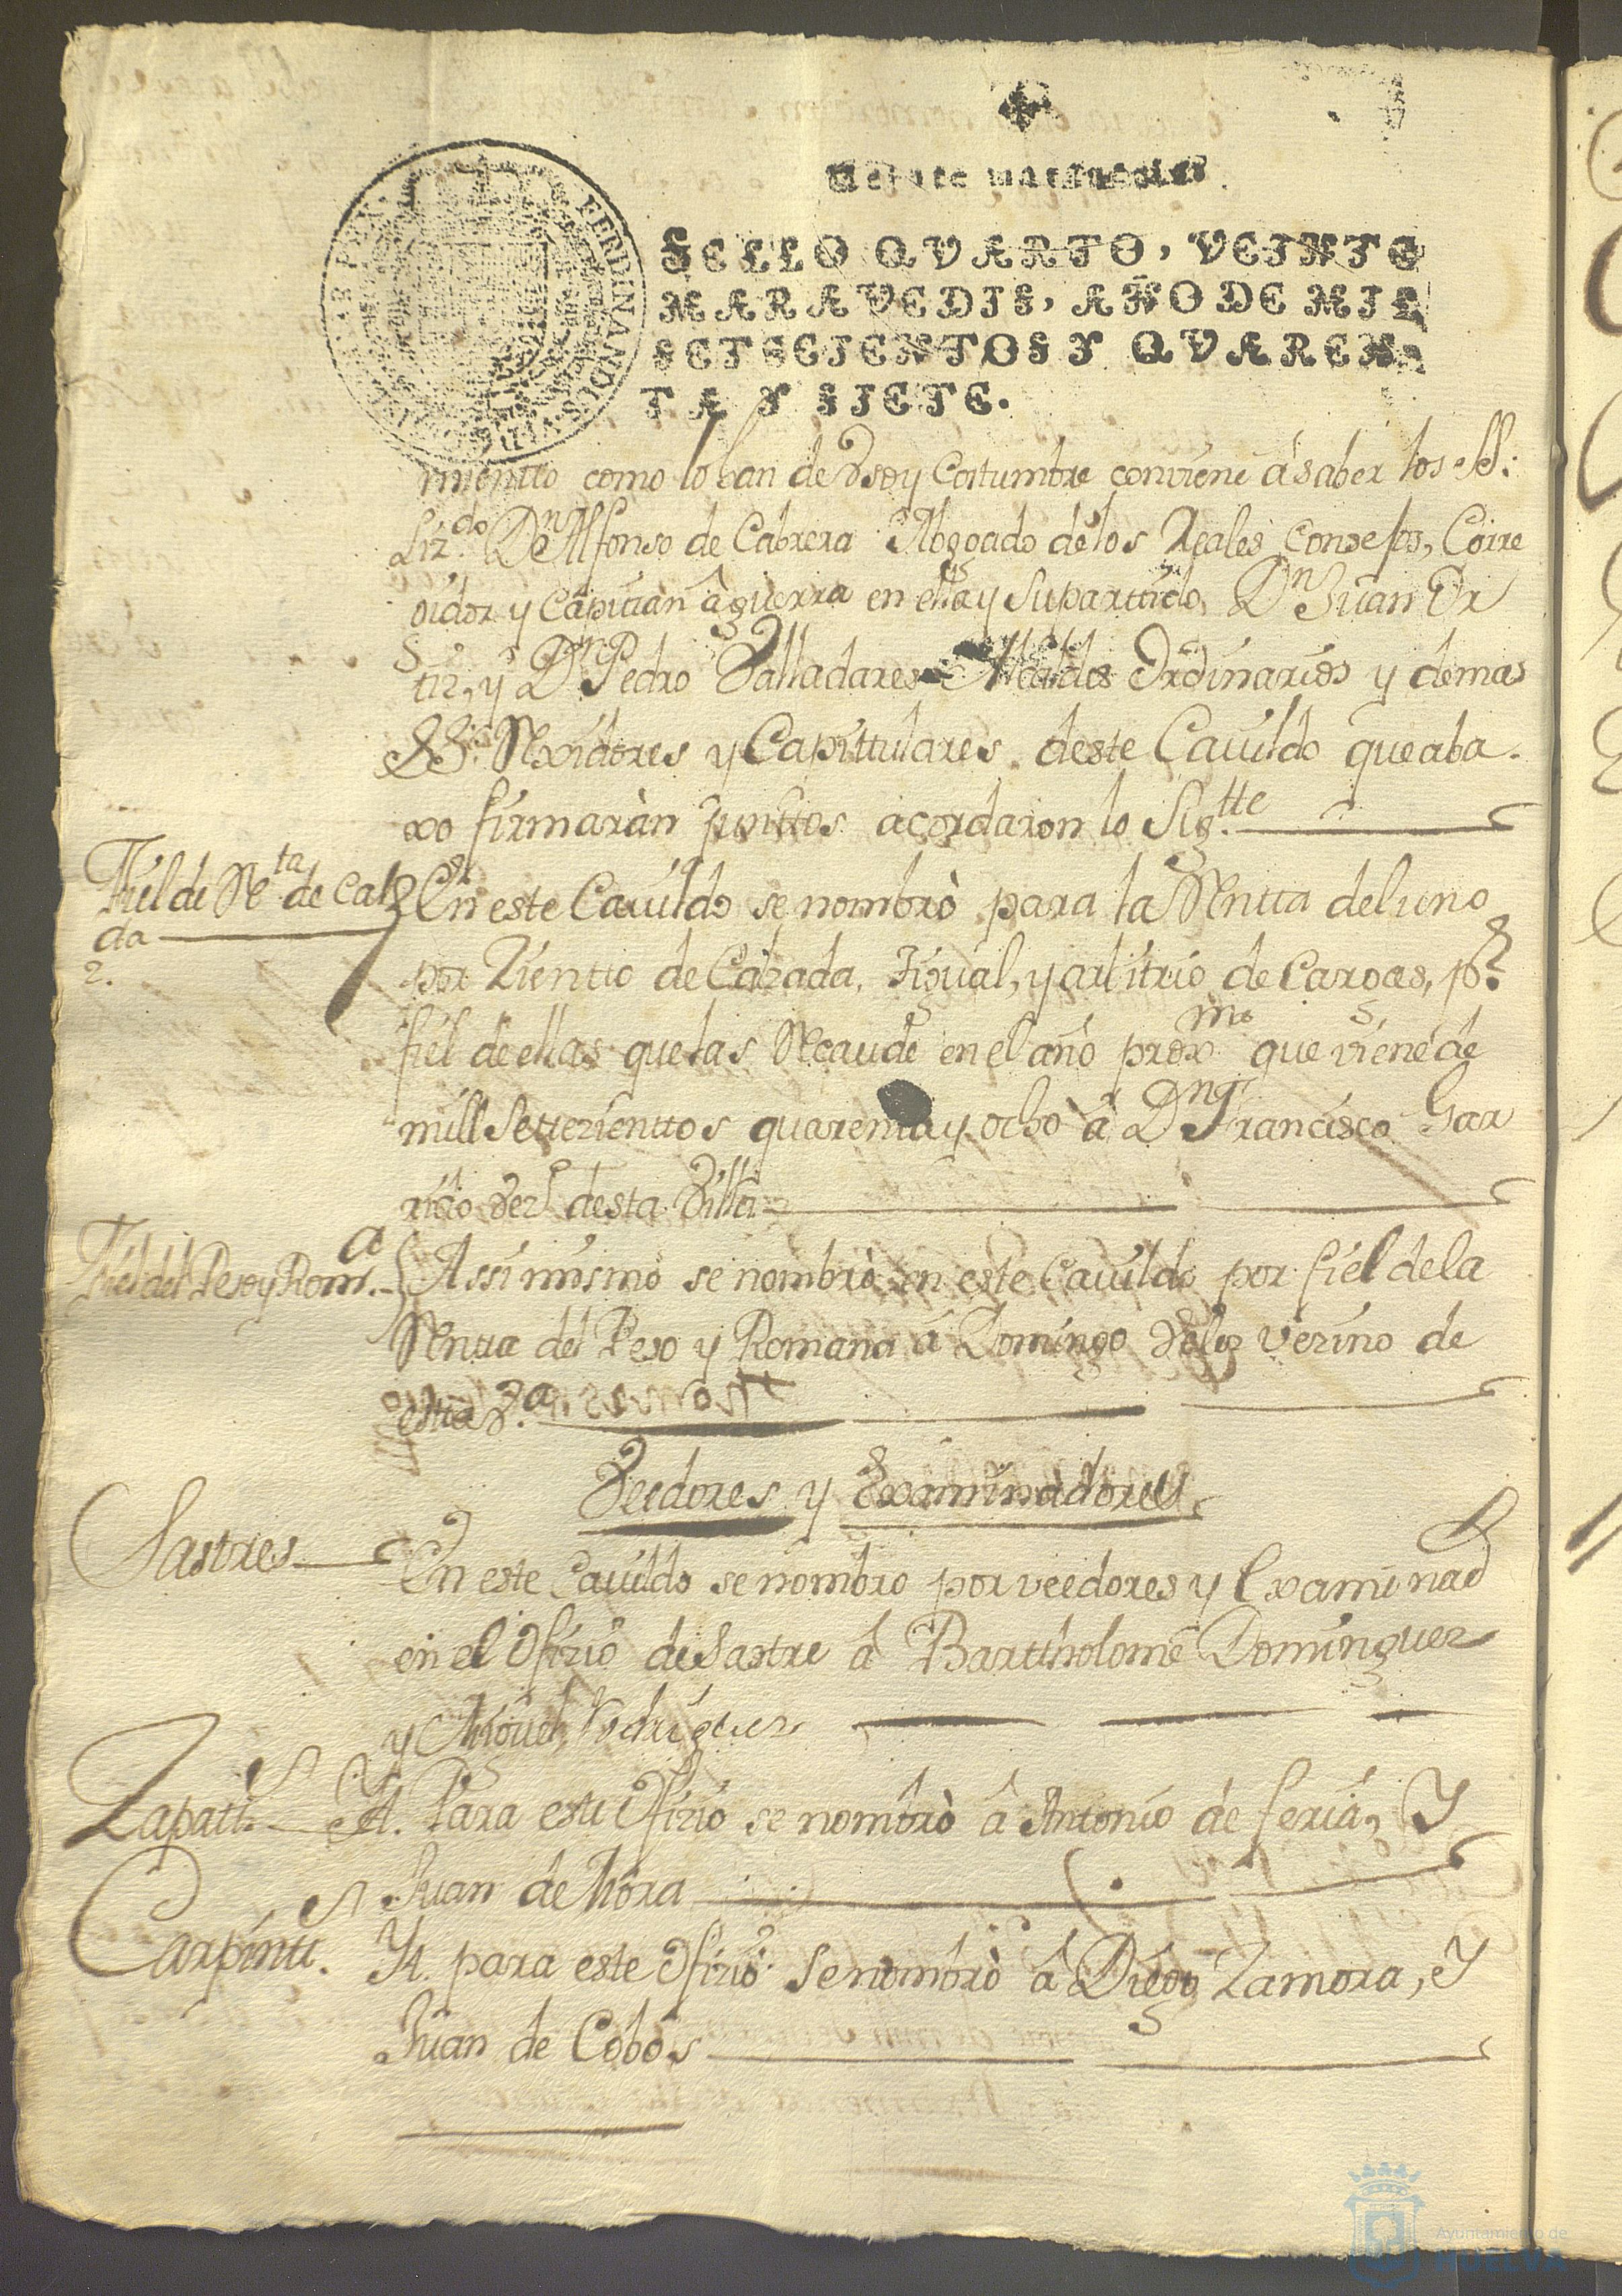 Veinte maravedis.
SELLO QVARTO, VEINTE
MARAVEDIS, AÑO DE MIL
SETECIENTOS Y QVAREN-
TA Y SIETE.
FERDINANDUS
mientto como lo han de Vso y Costumbre conviene â saber los SS.
Liz.do Dn Alfonso de Cabrera Abogado de los Rs. Consejos, Corre
gidor y Capitan â guerra en ella y su parttido, Dn Juan Or
tiz, y Dn Pedro Valladares Alcaldes Ordinarios y demas
SS. Rexidores y Capittulares deste Cauildo que aba
xo firmaràn junttos acordaron lo Sig.tte
Fiel de Rta de Calz
da
2.
En este Cauildo se nombrò para la Rentta del uno
por Zientto de Calzada, Figual, y arbitrio de Cargas, pr
fiel de ellas que las Recaude en el año prox.mo que viene de
mill Settezienttos quarenta y ocho à Dn Francisco Gar
rido Vez.º desta Villa
Fiel del Peso y Rom.a
Assimismo se nombrò en este Cauildo por fiel de la
Rentta del Peso y Romana â Domingo Velez vezino de
estta V.a
Veedores y Examinadores
Sastres
En este Cauildo se nombrò por veedores y Examinad
en el Ofizio de Sastre â Barttholomè Dominguez
y Miguel Rodriguez
Zapatt.
Yt. Para estte Ofizio se nombrò â Antonio de feria, Y
Juan de Mora
Carpintt.
Yt. para este Ofizio se nombrò â Diego Zamora, Y
Juan de Cobos
Ayuntamiento de
HUELVA